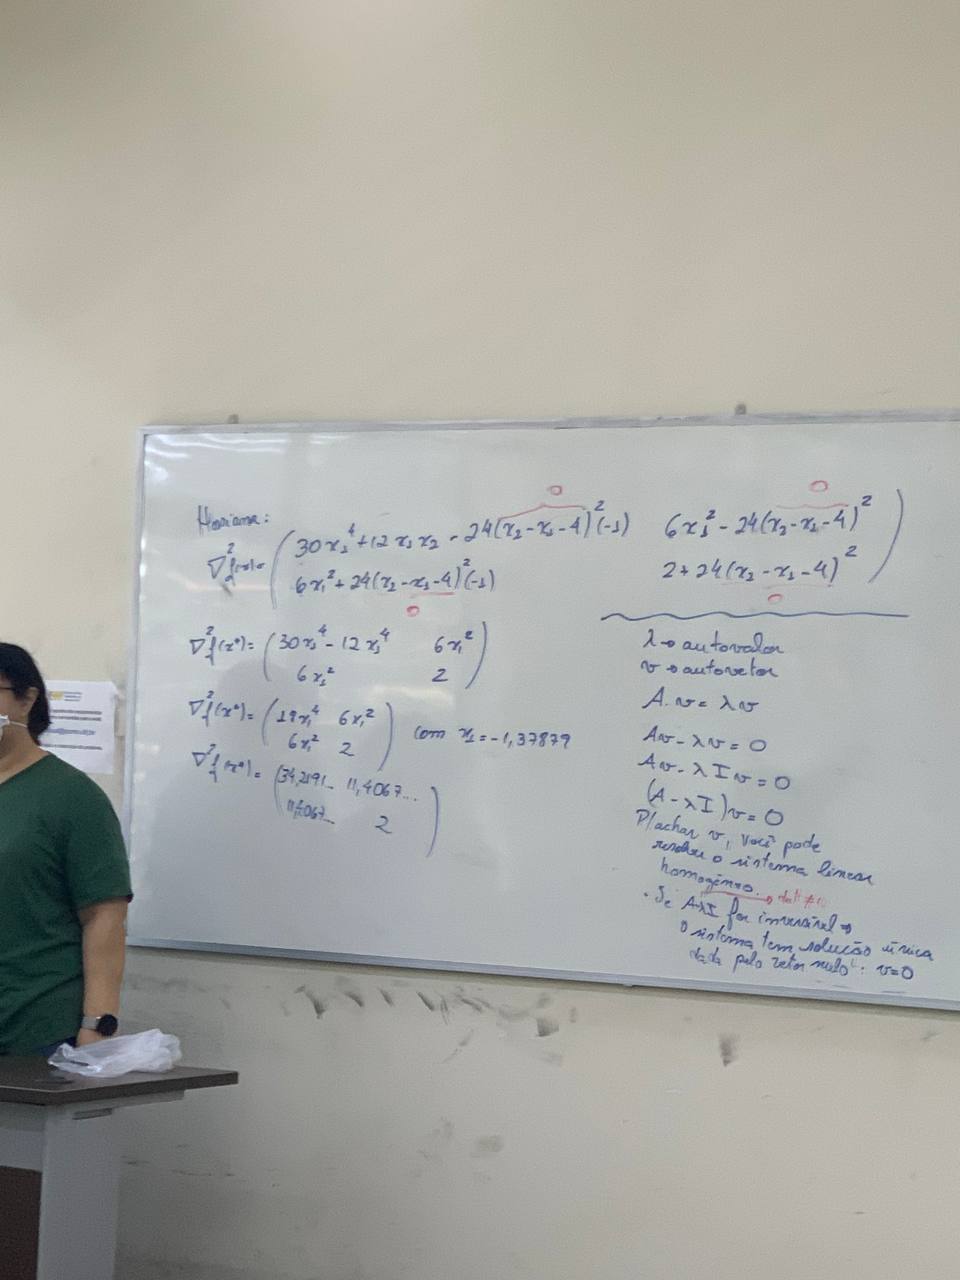 Hessiana:
∇²f(x)= ( 30x₁⁴+12x₁x₂ - 24(x₂-x₁-4)²(-1) 6x₁² - 24(x₂-x₁-4)²
6x₁² + 24(x₂-x₁-4)²(-1) 2+24(x₂-x₁-4)² )
0 0
0 0
∇²f(x*)= ( 30x₁⁴ - 12x₁⁴ 6x₁²
6x₁² 2 )
∇²f(x*)= ( 18x₁⁴ 6x₁²
6x₁² 2 ) com x₁=-1,37879
∇²f(x*)= ( 11,4067...
11,4067... 2 )
λ→autovalor
v→autovetor
A.v=λv
Av-λv=0
Av-λIv=0
(A-λI)v=0
P/achar v, você pode
resolver o sistema linear
homogêneo.
• Se A-λI for inversível ⇒
o sistema tem solução única
dada pelo vetor nulo: v=0